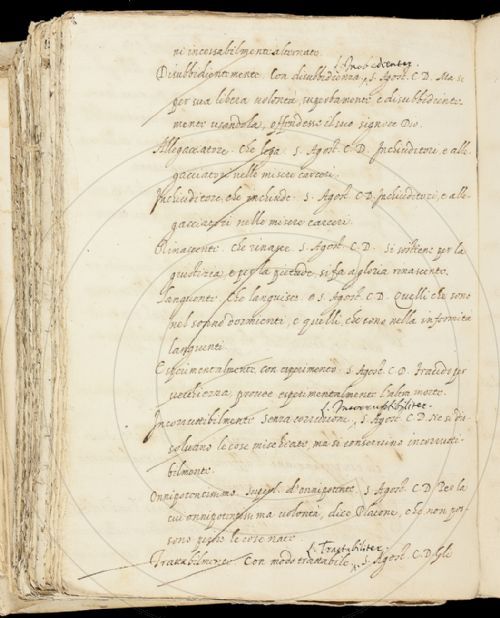 ni incessabilmente alternate.
L. Inobedienter.
Disubbidientemente. Con disubbidienza, S. Agost. C. D. Ma se
per sua libera volontà, superbamente e disubbidiente-
mente usandola, offendesse il suo signore Dio.
Allegacciatore. Che lega. S. Agost. C. D. Inchiuditori, e alle-
gacciatori nelle misere carceri.
Inchiuditore, che inchiude. S. Agost. C. D. Inchiuditori, e alle-
gacciatori nelle misere carceri.
Rinascente. Che rinasce. S. Agost. C. D. Si sostiene per la
giustizia, e per la pietade, si fa a gloria renascente.
Languente. Che languisce. S. Agost. C. D. Quelli che sono
nel sonno dormienti, e quelli, che sono nella infermità
languenti.
Esperimentalmente, con esperimento. S. Agost. C. D. per
vecchiezza, provoe esperimentalmente l'altra morte.
L. Incorruptibiliter.
Incorruttibilmente. Senza corruzione, S. Agost. C. D. Ne si dis-
solvano le cose mischiate, ma si conservino incorrutti-
bilmente.
Onnipotentissimo. Superl. d'onnipotente. S. Agost. C. D. Per la
cui onnipotentissima volontà, dice Platone, che non pos-
sono perire le cose nate.
L. Tractabiliter.
Trattabilmente. Con modo trattabile, S. Agost. C. D. Gli